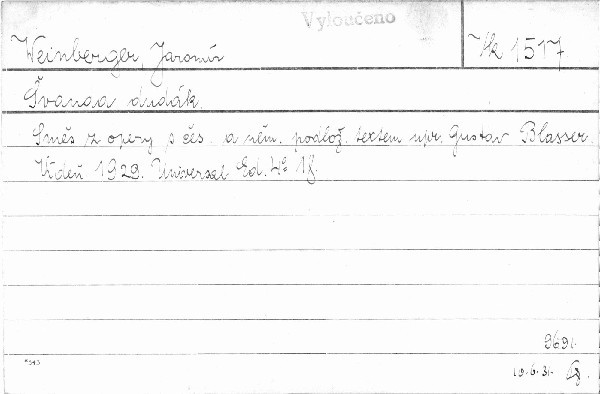 Vyloučeno
Weinberger, Jaromír
Hk 1517
Švanda dudák.
Směs z opery s čes. a něm. podlož. textem upr. Gustav Blasser.
Vídeň 1929. Universal Ed. 4º 18.
9691.
19.6.31.